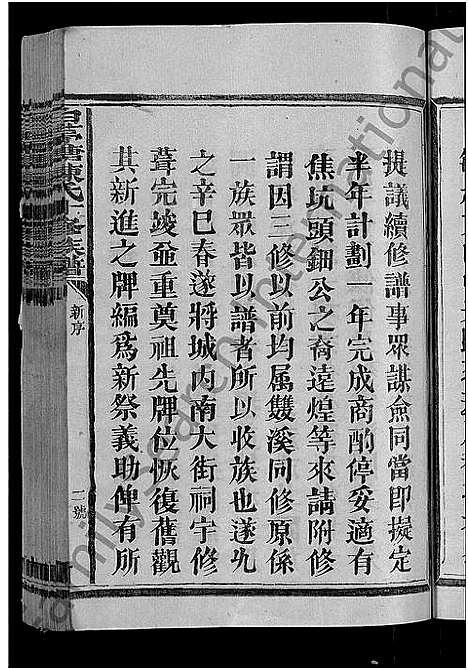 提議續修譜事眾謀僉同當即擬定
半年計劃一年完成商酌停妥適有
焦坑頭鈿公之裔遠煌等來請附修
謂因三修以前均屬雙溪同修原係
一族眾皆以譜者所以收族也遂允
之辛巳春遂將城內南大街祠宇修
葺完竣並重奠祖先牌位恢復舊觀
其新進之牌編爲新祭義助俾有所
新序
二號
familysearch international